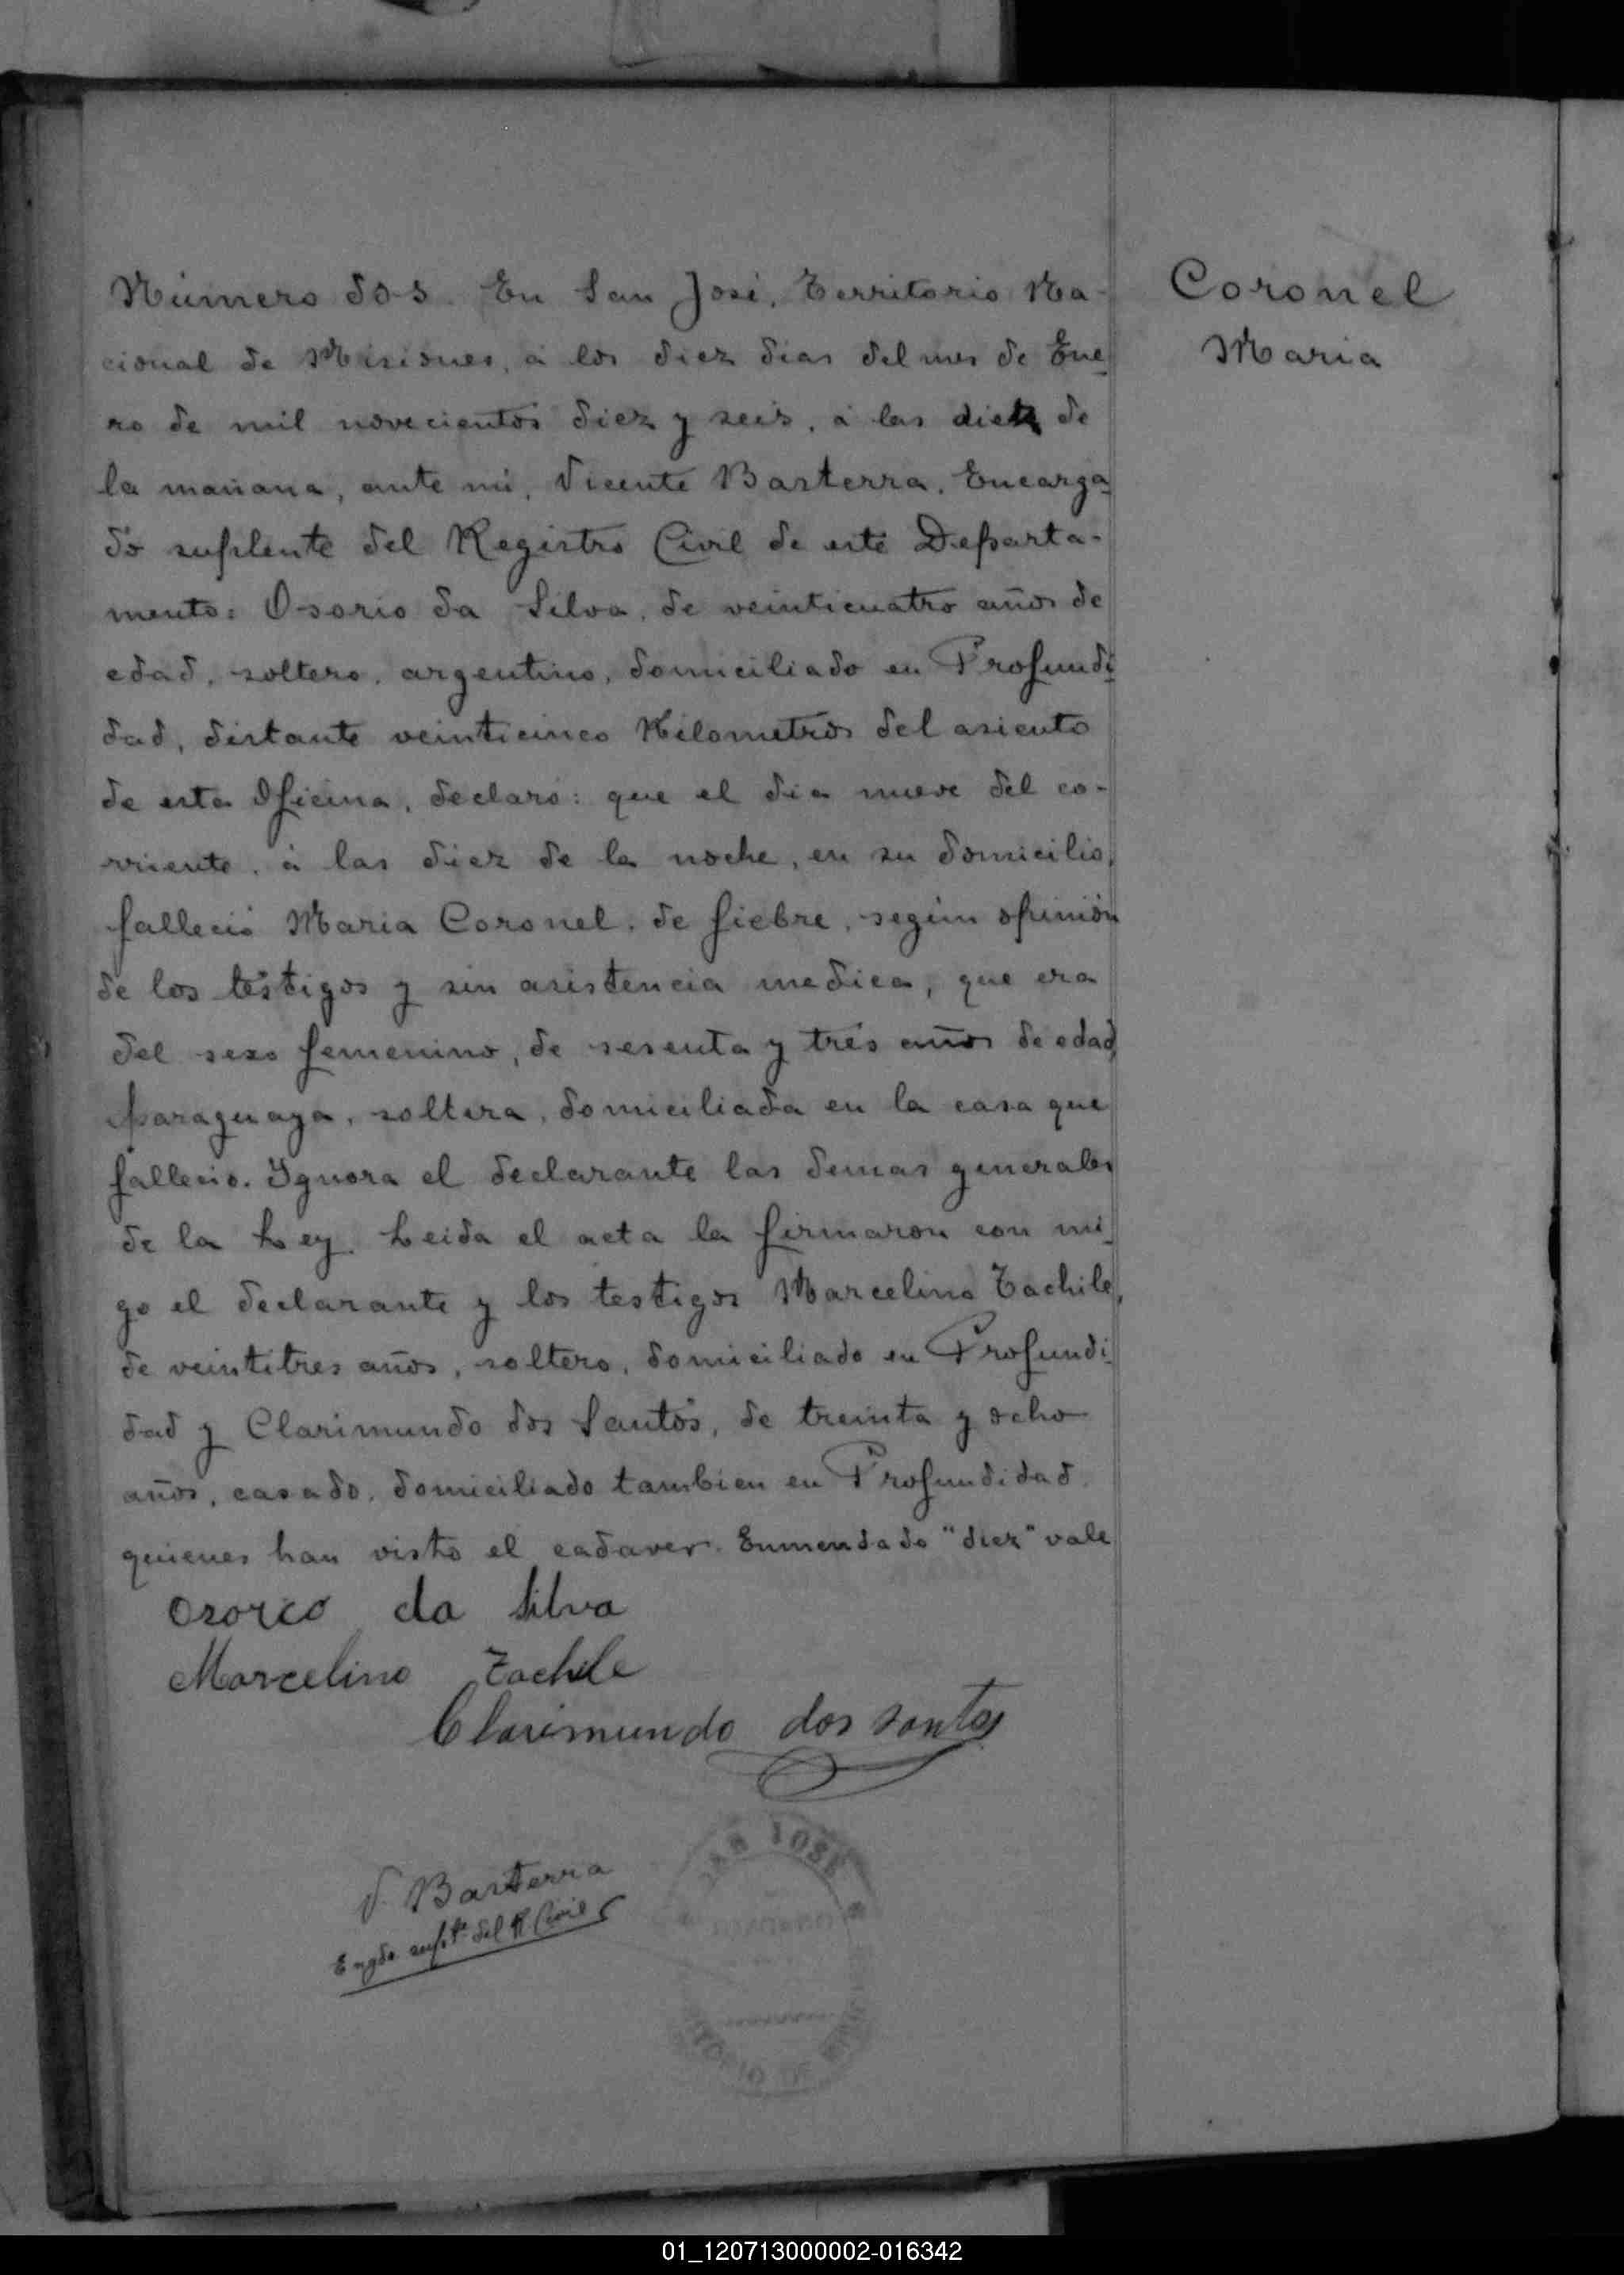 Número dos. En San José, Territorio Na-
cional de Misiones, á los diez dias del mes de Ene-
ro de mil novecientos diez y seis, á las diez de
la mañana, ante mi, Vicente Basterra, Encarga-
do suplente del Registro Civil de este Departa-
mento: Osorio da Silva, de veinticuatro años de
edad, soltero, argentino, domiciliado en Profundi-
dad, distante veinticinco Kilometros del asiento
de esta Oficina, declaro: que el dia nueve del co-
rriente, á las diez de la noche, en su domicilio,
falleció Maria Coronel, de fiebre, según opinión
de los testigos y sin asistencia medica, que era
del sexo femenino, de sesenta y tres años de edad,
paraguaya, soltera, domiciliada en la casa que
fallecio. Ignora el declarante las demas generales
de la Ley. Leida el acta la firmaron con mi-
go el declarante y los testigos Marcelino Tachile,
de veintitres años, soltero, domiciliado en Profundi-
dad y Clarimundo dos Santos, de treinta y ocho
años, casado, domiciliado tambien en Profundidad,
quienes han visto el cadaver. Enmendado "diez" vale
Osorio da Silva
Marcelino Tachile
Clarimundo dos santos
V. Basterra
Engdo suplte del R Civil
SAN JOSÉ
Coronel
Maria
01_120713000002-016342